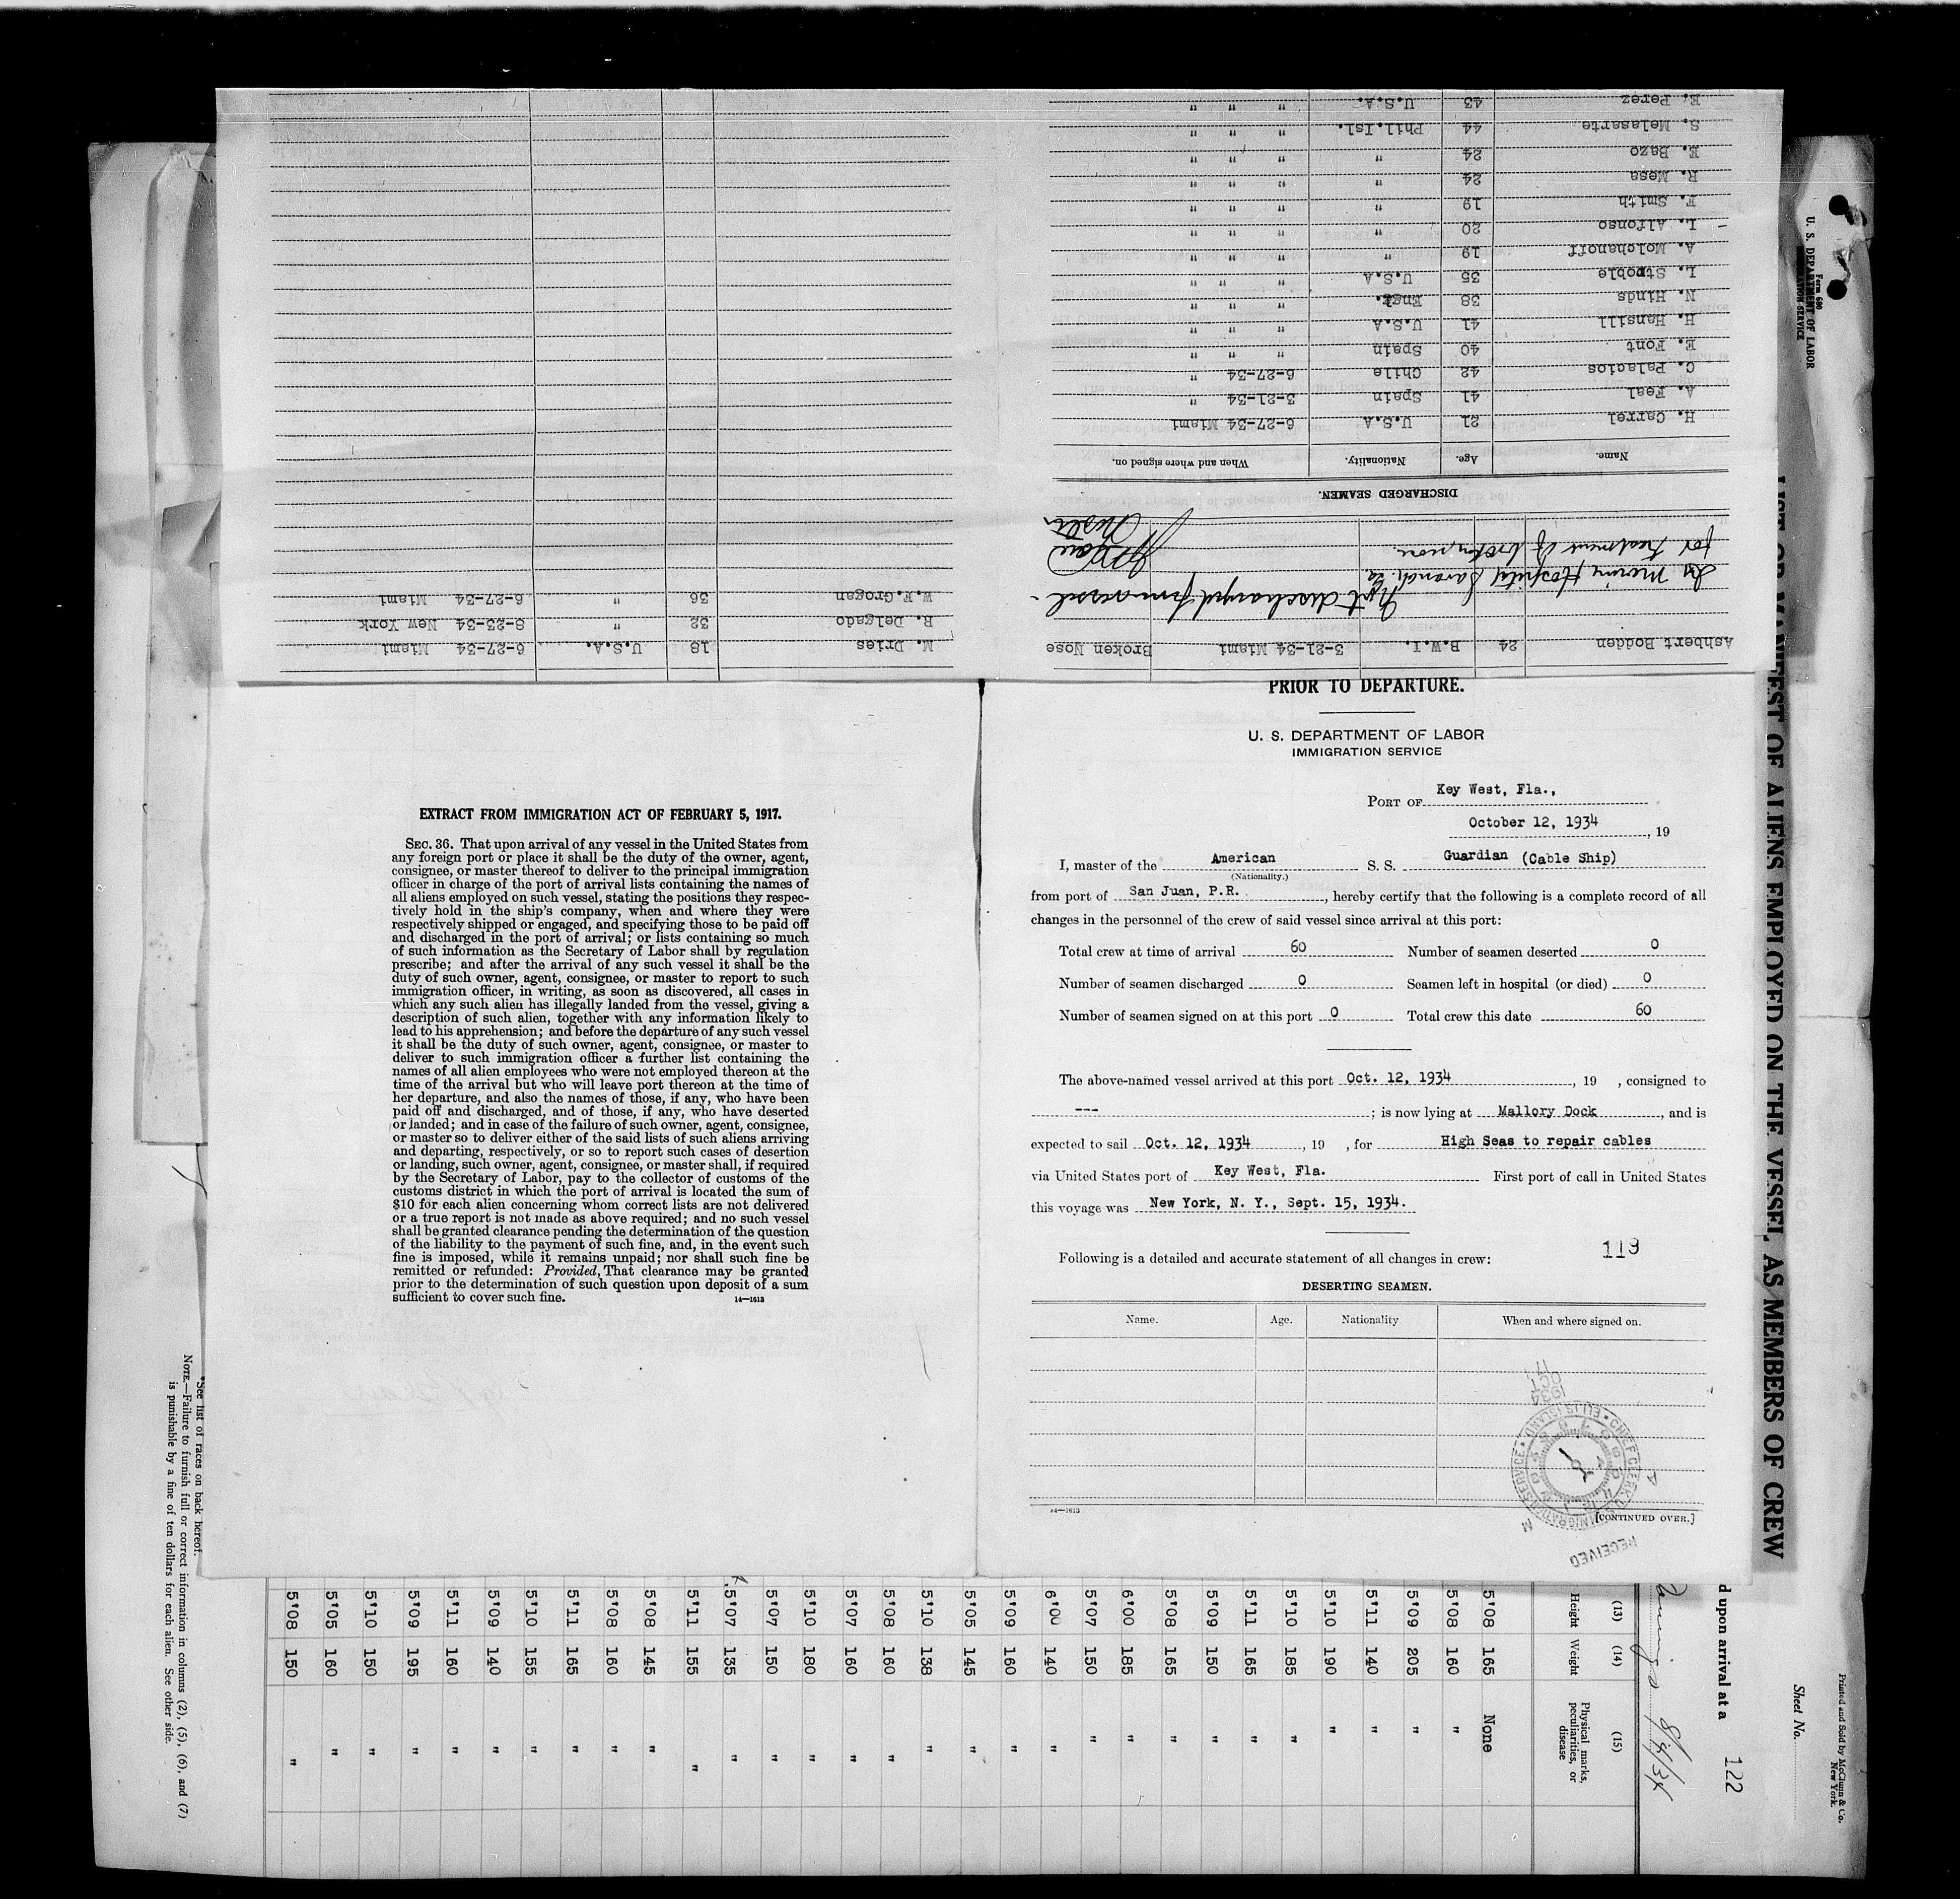 E. Perez 43 U.S.A. " " "
S. Melasarte 44 Phil.Isl. " " "
E. Bazo 24 " " " "
R. Mesa 24 " " " "
F. Smith 19 " " " "
L. Alfonso 20 " " " "
A. Molchanoff 19 " " " "
L. Stroble 35 U.S.A " " "
N. Hinds 38 Engr. " " "
H. Hansill 41 U.S.A " " "
E. Font 40 Spain " " "
C. Palacios 42 Chile 6-27-34 "
A. Feal 41 Spain 3-21-34 "
H. Carrel 21 U.S.A 6-27-34 Miami
Name. Age. Nationality. When and where signed on.
DISCHARGED SEAMEN.
for treatment of broken nose.
In Marine Hospital Savannah, Ga
Not discharged from vessel.
Master
Ashbert Bodden 24 B.W.I. 3-21-34 Miami Broken Nose
W.F.Grogan 36 " 6-27-34 Miami
R. Delgado 32 " 8-23-34 New York
M. Dries 18 U.S.A. 6-27-34 Miami
EXTRACT FROM IMMIGRATION ACT OF FEBRUARY 5, 1917.
SEC. 36. That upon arrival of any vessel in the United States from
any foreign port or place it shall be the duty of the owner, agent,
consignee, or master thereof to deliver to the principal immigration
officer in charge of the port of arrival lists containing the names of
all aliens employed on such vessel, stating the positions they respec-
tively hold in the ship's company, when and where they were
respectively shipped or engaged, and specifying those to be paid off
and discharged in the port of arrival; or lists containing so much
of such information as the Secretary of Labor shall by regulation
prescribe; and after the arrival of any such vessel it shall be the
duty of such owner, agent, consignee, or master to report to such
immigration officer, in writing, as soon as discovered, all cases in
which any such alien has illegally landed from the vessel, giving a
description of such alien, together with any information likely to
lead to his apprehension; and before the departure of any such vessel
it shall be the duty of such owner, agent, consignee, or master to
deliver to such immigration officer a further list containing the
names of all alien employees who were not employed thereon at the
time of the arrival but who will leave port thereon at the time of
her departure, and also the names of those, if any, who have been
paid off and discharged, and of those, if any, who have deserted
or landed; and in case of the failure of such owner, agent, consignee,
or master so to deliver either of the said lists of such aliens arriving
and departing, respectively, or so to report such cases of desertion
or landing, such owner, agent, consignee, or master shall, if required
by the Secretary of Labor, pay to the collector of customs of the
customs district in which the port of arrival is located the sum of
$10 for each alien concerning whom correct lists are not delivered
or a true report is not made as above required; and no such vessel
shall be granted clearance pending the determination of the question
of the liability to the payment of such fine, and, in the event such
fine is imposed, while it remains unpaid; nor shall such fine be
remitted or refunded: Provided, That clearance may be granted
prior to the determination of such question upon deposit of a sum
sufficient to cover such fine. 14—1613
PRIOR TO DEPARTURE.
U. S. DEPARTMENT OF LABOR
IMMIGRATION SERVICE
PORT OF Key West, Fla.,
October 12, 1934, 19
I, master of the American S. S. Guardian (Cable Ship)
(Nationality.)
from port of San Juan, P.R., hereby certify that the following is a complete record of all
changes in the personnel of the crew of said vessel since arrival at this port:
Total crew at time of arrival 60 Number of seamen deserted 0
Number of seamen discharged 0 Seamen left in hospital (or died) 0
Number of seamen signed on at this port 0 Total crew this date 60
The above-named vessel arrived at this port Oct. 12, 1934, 19 , consigned to
---; is now lying at Mallory Dock, and is
expected to sail Oct. 12, 1934, 19 , for High Seas to repair cables
via United States port of Key West, Fla. First port of call in United States
this voyage was New York, N. Y., Sept. 15, 1934.
119
Following is a detailed and accurate statement of all changes in crew:
DESERTING SEAMEN.
Name. Age. Nationality. When and where signed on.
1934
OCT
17
CHIEF CLERK U.S. IMMIGRATION SERVICE • ELLIS ISLAND •
RECEIVED
14—1613
[CONTINUED OVER.]
Form 680
U. S. DEPARTMENT OF LABOR
IMMIGRATION SERVICE
LIST OR MANIFEST OF ALIENS EMPLOYED ON THE VESSEL AS MEMBERS OF CREW
Printed and Sold by McClunn & Co.
New York.
Sheet No.
d upon arrival at a
122
(13) (14) (15)
Height Weight Physical marks, peculiarities, or disease
5'08 165 None
5'08 160 "
5'09 205 "
5'11 140 "
5'10 190 "
5'10 185 "
5'11 165 "
5'09 150 "
5'08 165 "
6'00 185 "
5'07 150 "
6'00 140 "
5'09 160 "
5'05 145 "
5'10 138 "
5'08 160 "
5'07 160 "
5'10 180 "
5'07 150 "
5'07 135 "
5'11 155 "
5'08 145 "
5'08 160 "
5'11 165 "
5'10 155 "
5'09 140 "
5'11 160 "
5'09 195 "
5'10 150 "
5'05 160 "
5'08 150 "
*See list of races on back hereof.
NOTE.—Failure to furnish full or correct information in columns (2), (5), (6), and (7)
is punishable by a fine of ten dollars for each alien. See other side.